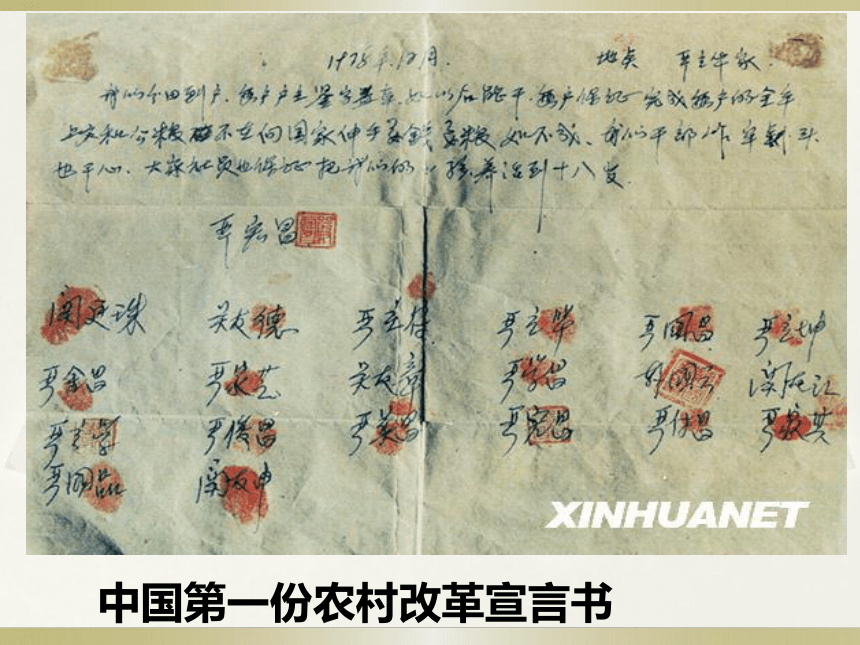 1978年12月. 地点 严立华家.
我们分田到户，每户户主签字盖章，如以后能干，每户保证完成每户的全年
上交和公粮不在向国家伸手要钱要粮，如不成，我们干部作牢刹头
也干心，大家社员也保证把我们的小孩养活到十八岁.
严宏昌
关延珠 关友德 严立符 严立华 严国昌 严立坤
严金昌 严家芝 关友章 严学昌 韩国云 关友江
严立学 严俊昌 严美昌 严宏昌 严付昌 严家其
严国品 关友申
XINHUANET
中国第一份农村改革宣言书